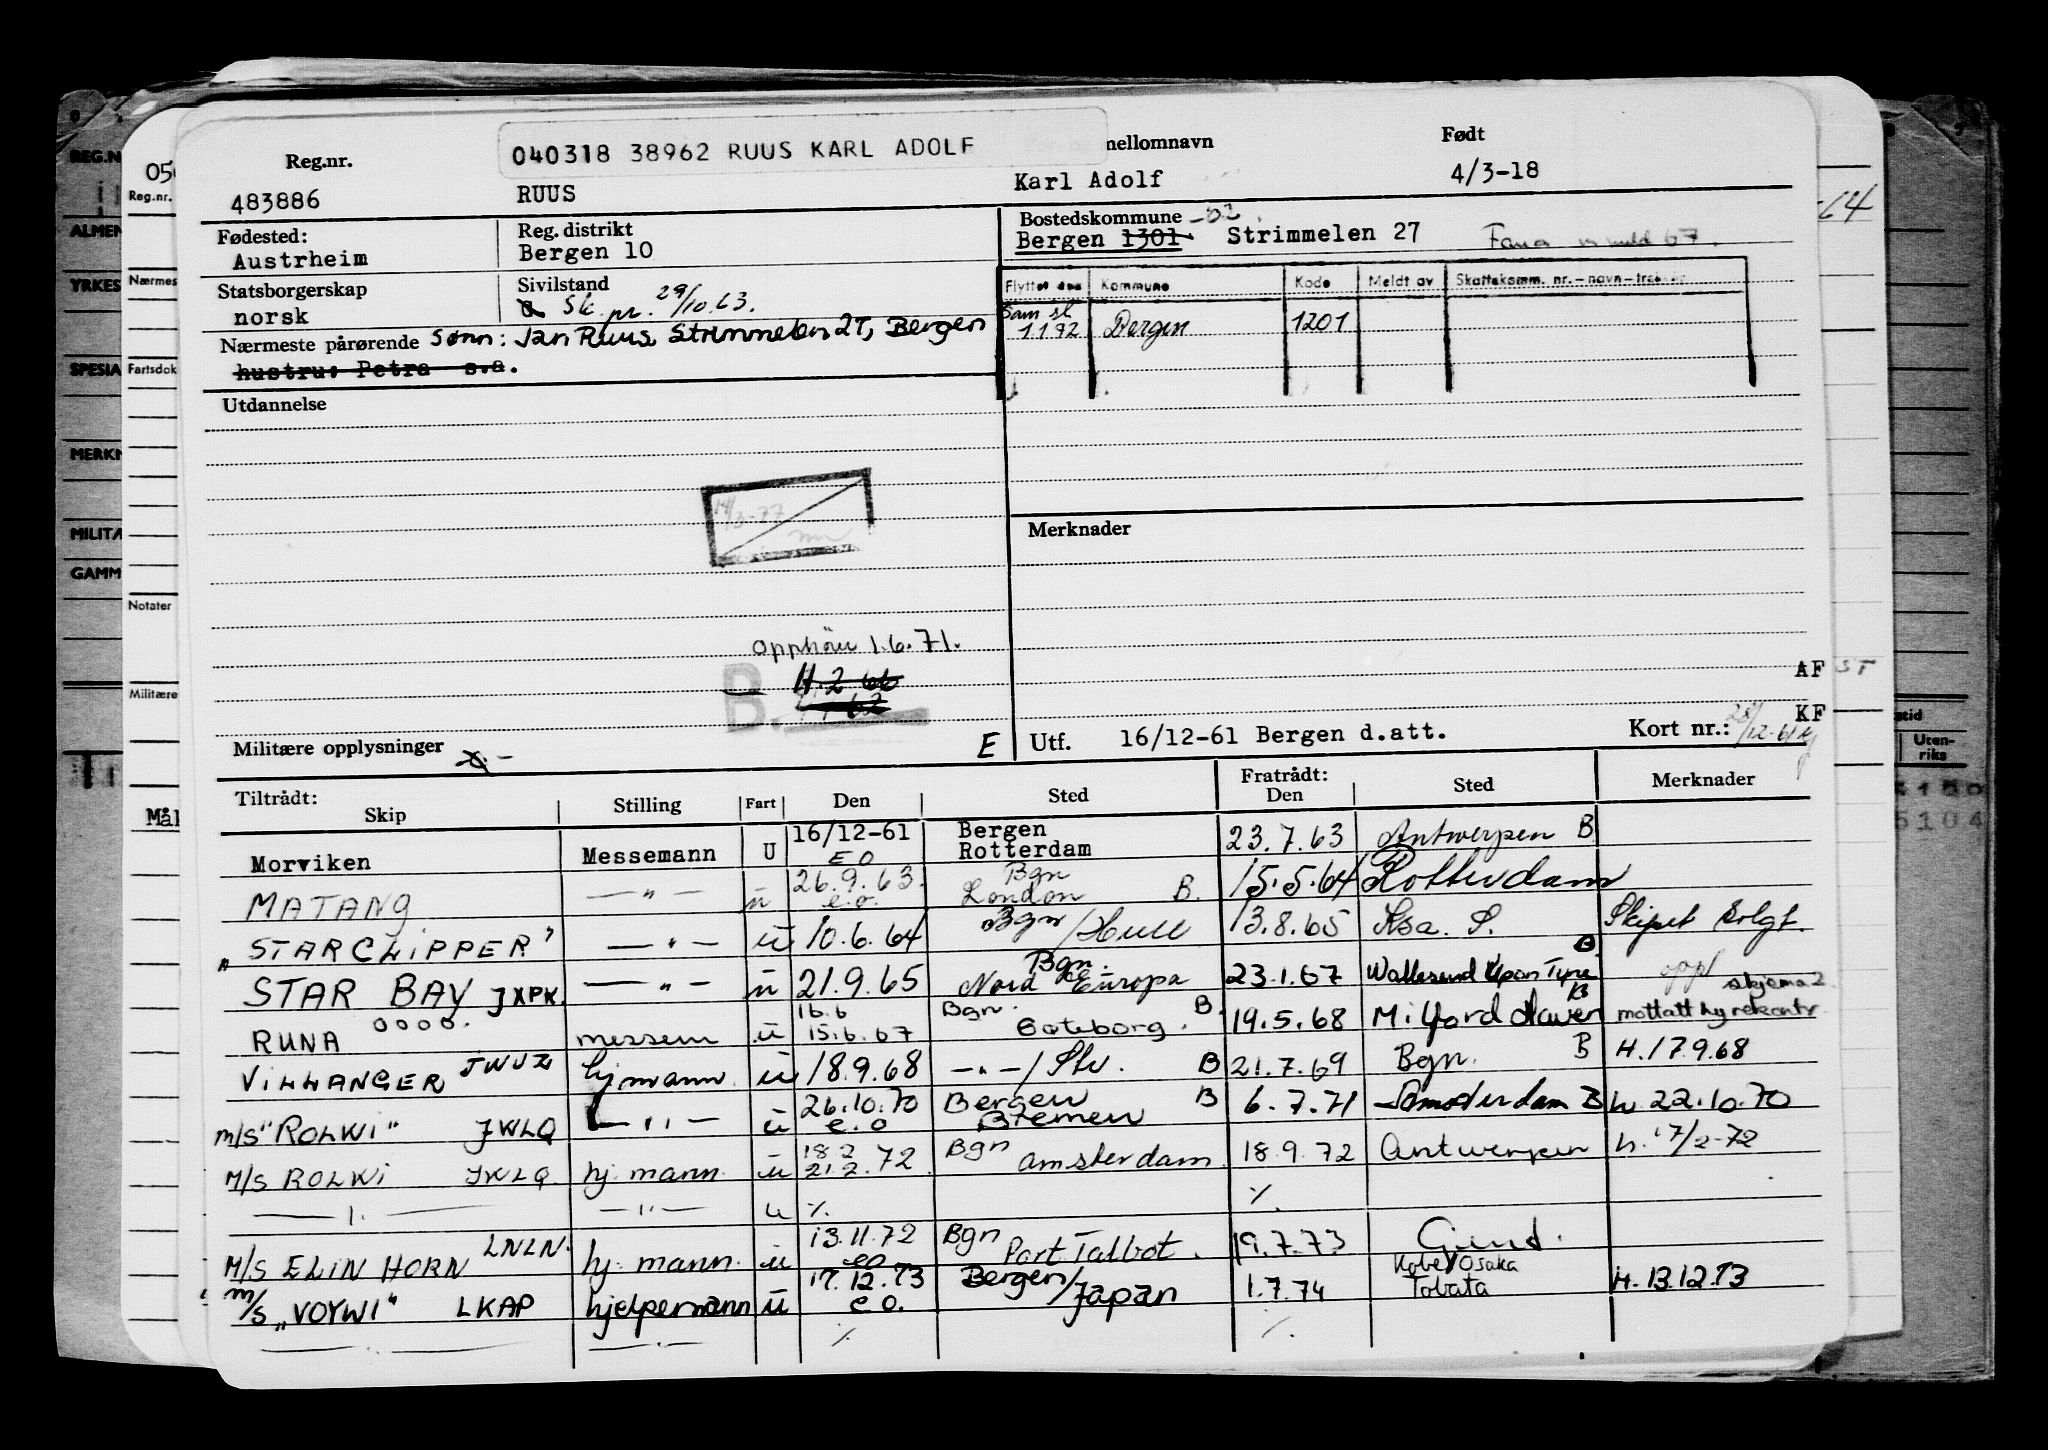 040318 38962 RUUS KARL ADOLF
Reg.nr. mellomnavn Født
483886 RUUS Karl Adolf 4/3-18
Fødested: Reg. distrikt Bostedskommune -02
Austrheim Bergen 10 Bergen 1301. Strimmelen 27 Fana 67.
Statsborgerskap Sivilstand
norsk Sk. pr. 29/10.63.
Flyttet Kommune Kode Meldt av Skattekomm. nr.-navn-
Sam sl
1.1.72 Bergen 1201
Nærmeste pårørende Sønn: Jan Ruus, Strimmelen 27, Bergen
hustru: Petra s.a.
Utdannelse
14/3-77
Merknader
opphøu 1.6.71.
B. H.2 66
62
AF ST
KF
Militære opplysninger E Utf. 16/12-61 Bergen d.att. Kort nr.:
Tiltrådt: Fratrådt:
Skip Stilling Fart Den Sted Den Sted Merknader
Morviken Messemann U 16/12-61 E O Bergen Rotterdam 23.7.63 Antwerpen B
MATANG —"— u 26.9.63. e.o. Bgn London B. 15.5.64 Rotterdam
„STARCLIPPER" —"— u 10.6.64 Bgn/Hull 13.8.65 Ksa. S. Skipet solgt.
STAR BAY JXPK. —"— u 21.9.65 Bgn. Nord Europa 23.1.67 Wallsend Upon Tyne B oppl skjema 2
RUNA oooo. messem u 16.6 15.6.67 Bgn. Göteborg. B. 19.5.68 Milford Haven B mottatt hyrekontr.
VILLANGER JWUZ hj mann. u 18.9.68 —"—/Stv. B 21.7.69 Bgn. B H.17.9.68
m/s "ROLWI" JWLQ —"— u 26.10.70 e.o Bergen Bremen B 6.7.71 Amsterdam B h. 22.10.70
M/S ROLWI JWLQ hj. mann. u 18.2 21.2.72 Bgn Amsterdam. 18.9.72 Antwerpen h. 17/2-72
—"— —"— u ./. ./.
M/S ELIN HORN LNLN. hj. mann. u 13.11.72 eo Bgn Port Talbot. 19.7.73 Gend.
m/s „VOYWI" LKAP hjelpemann u 17.12.73 e o. Bergen/Japan 1.7.74 Kobe/Osaka Tobata H. 13.12.73
—"— —"— ./. ./.
REG.N
ALMEN
YRKES
SPESIA
MERKN
MILITA
GAMM
Reg.nr.
Nærmes
Fartsdok
Notater
Militære
Mål
-64
Uten-
riks
5104